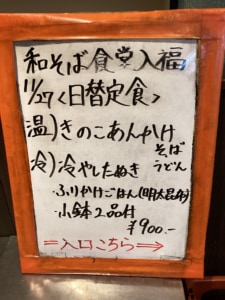 和そば食堂入福
11/27〈日替定食〉
温)きのこあんかけ
そば
うどん
冷)冷やしたぬき
・ふりかけごはん(明太昆布)
・小鉢2品付
¥900.-
=入口こちら⇒